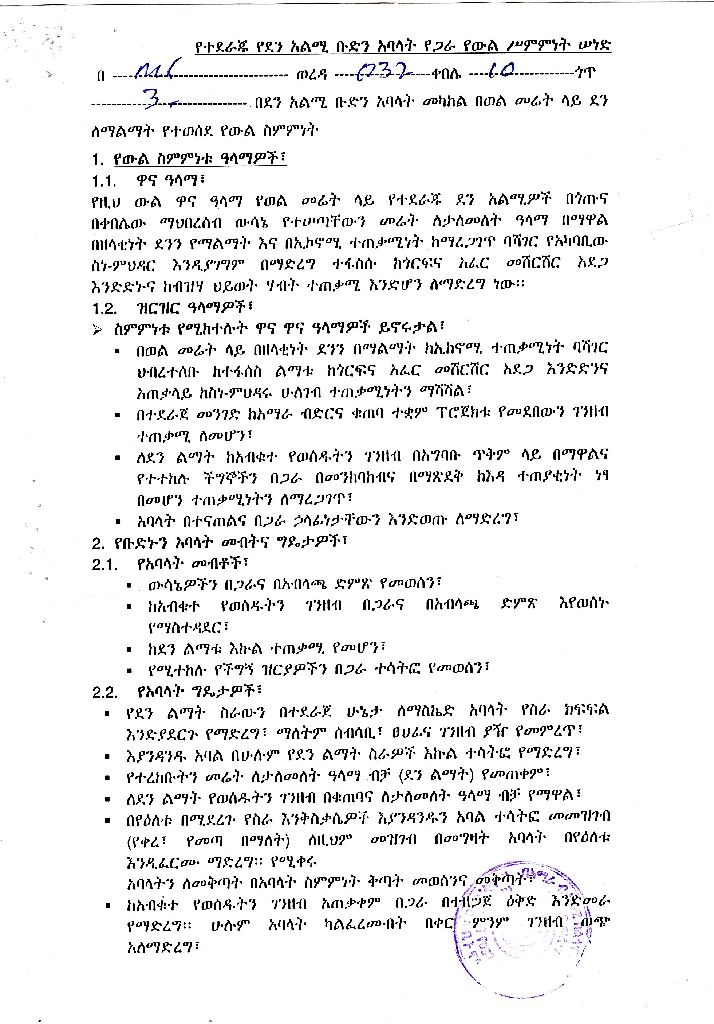 የተደራጁ የደን አልሚ ቡድን አባላት የጋራ የውል ሥምምነት ሠነድ
በ ---------------------------- ወረዳ ---032----ቀበሌ ---10--------ጎጥ
----------3------------------- በደን አልሚ ቡድን አባላት መካከል በወል መሬት ላይ ደን
ለማልማት የተወሰደ የውል ስምምነት
1. የውል ስምምነቱ ዓላማዎች፣
1.1. ዋና ዓላማ፣
የዚህ ውል ዋና ዓላማ የወል መሬት ላይ የተደራጁ ደን አልሚዎች በጎጡና
በቀበሌው ማህበረሰብ ውሳኔ የተሠጣቸውን መሬት ለታለመለት ዓላማ በማዋል
በዘላቂነት ደንን የማልማት እና በኢኮኖሚ ተጠቃሚነት ከማረጋገጥ ባሻገር የአካባቢው
ስነ-ምህዳር እንዲያገግም በማድረግ ተፋሰሱ ከጎርፍና አፈር መሸርሸር አደጋ
እንድድኑና ከብዝሃ ህይወት ሃብት ተጠቃሚ እንድሆን ለማድረግ ነው።
1.2. ዝርዝር ዓላማዎች፣
➢ ስምምነቱ የሚከተሉት ዋና ዋና ዓላማዎች ይኖሩታል፣
▪ በወል መሬት ላይ በዘላቂነት ደንን በማልማት ከኢከኖሚ ተጠቃሚነት ባሻገር
ህብረተሰቡ ከተፋሰስ ልማቱ ከጎርፍና አፈር መሸርሸር አደጋ እንድድንና
አጠቃላይ ከስነ-ምህዳሩ ሁለገብ ተጠቃሚነትን ማሻሻል፣
▪ በተደራጀ መንገድ ከአማራ ብድርና ቁጠባ ተቋም ፕሮጀክቱ የመደበውን ገንዘብ
ተጠቃሚ ለመሆን፣
▪ ለደን ልማት ከአብቁተ የወሰዱትን ገንዘብ በአግባቡ ጥቅም ላይ በማዋልና
የተተከሉ ችግኞችን በጋራ በመንከባከብና በማጽደቅ ከእዳ ተጠያቂነት ነፃ
በመሆን ተጠቃሚነትን ለማረጋገጥ፣
▪ አባላት በተናጠልና በጋራ ኃላፊነታቸውን እንድወጡ ለማድረግ፣
2. የቡድኑን አባላት መብትና ግዴታዎች፣
2.1. የአባላት መብቶች፣
▪ ውሳኔዎችን በጋራና በአብላጫ ድምጽ የመወሰን፣
▪ ከአብቁተ የወሰዱትን ገንዘብ በጋራና በአብላጫ ድምጽ እየወሰኑ
የማስተዳደር፣
▪ ከደን ልማቱ እኩል ተጠቃሚ የመሆን፣
▪ የሚተከሉ የችግኝ ዝርያዎችን በጋራ ተሳትፎ የመወሰን፣
2.2. የአባላት ግዴታዎች፣
▪ የደን ልማት ስራውን በተደራጀ ሁኔታ ለማስኬድ አባላት የስራ ክፍፍል
እንድያደርጉ የማድረግ፣ ማለትም ሰብሳቢ፣ ፀሀፊና ገንዘብ ያዥ የመምረጥ፣
▪ እያንዳንዱ አባል በሁሉም የደን ልማት ስራዎች እኩል ተሳትፎ የማድረግ፣
▪ የተረከቡትን መሬት ለታለመለት ዓላማ ብቻ (ደን ልማት) የመጠቀም፣
▪ ለደን ልማት የወሰዱትን ገንዘብ በቁጠባና ለታለመለት ዓላማ ብቻ የማዋል፣
▪ በየዕለቱ በሚደረጉ የስራ እንቅስቃሴዎች እያንዳንዱን አባል ተሳትፎ መመዝገብ
(የቀረ፣ የመጣ በማለት) ለዚህም መዝገብ በመግዛት አባላት በየዕለቱ
እንዲፈርሙ ማድረግ። የሚቀሩ
አባላትን ለመቅጣት በአባላት ስምምነት ቅጣት መወሰንና መቅጣት፣
▪ ከአብቁተ የወሰዱትን ገንዘብ አጠቃቀም በጋራ በተዘጋጀ ዕቅድ እንድመራ
የማድረግ። ሁሉም አባላት ካልፈረሙበት በቀር ምንም ገንዘብ ወጭ
አለማድረግ፣